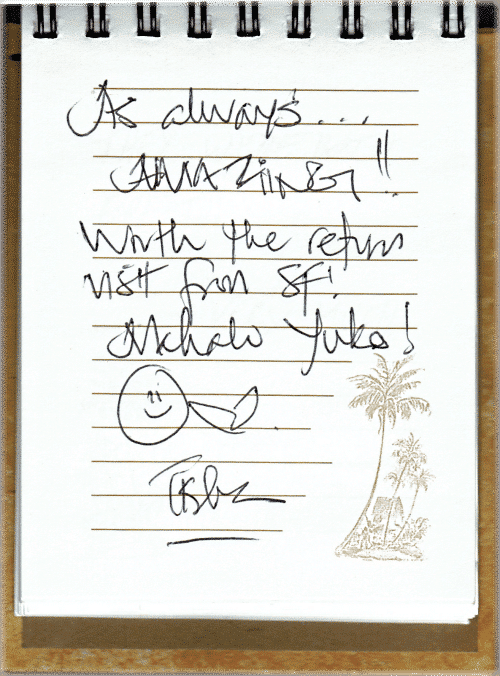 As always...
AMAZING!!
Worth the return
visit from SF!
Mahalo Yuko!